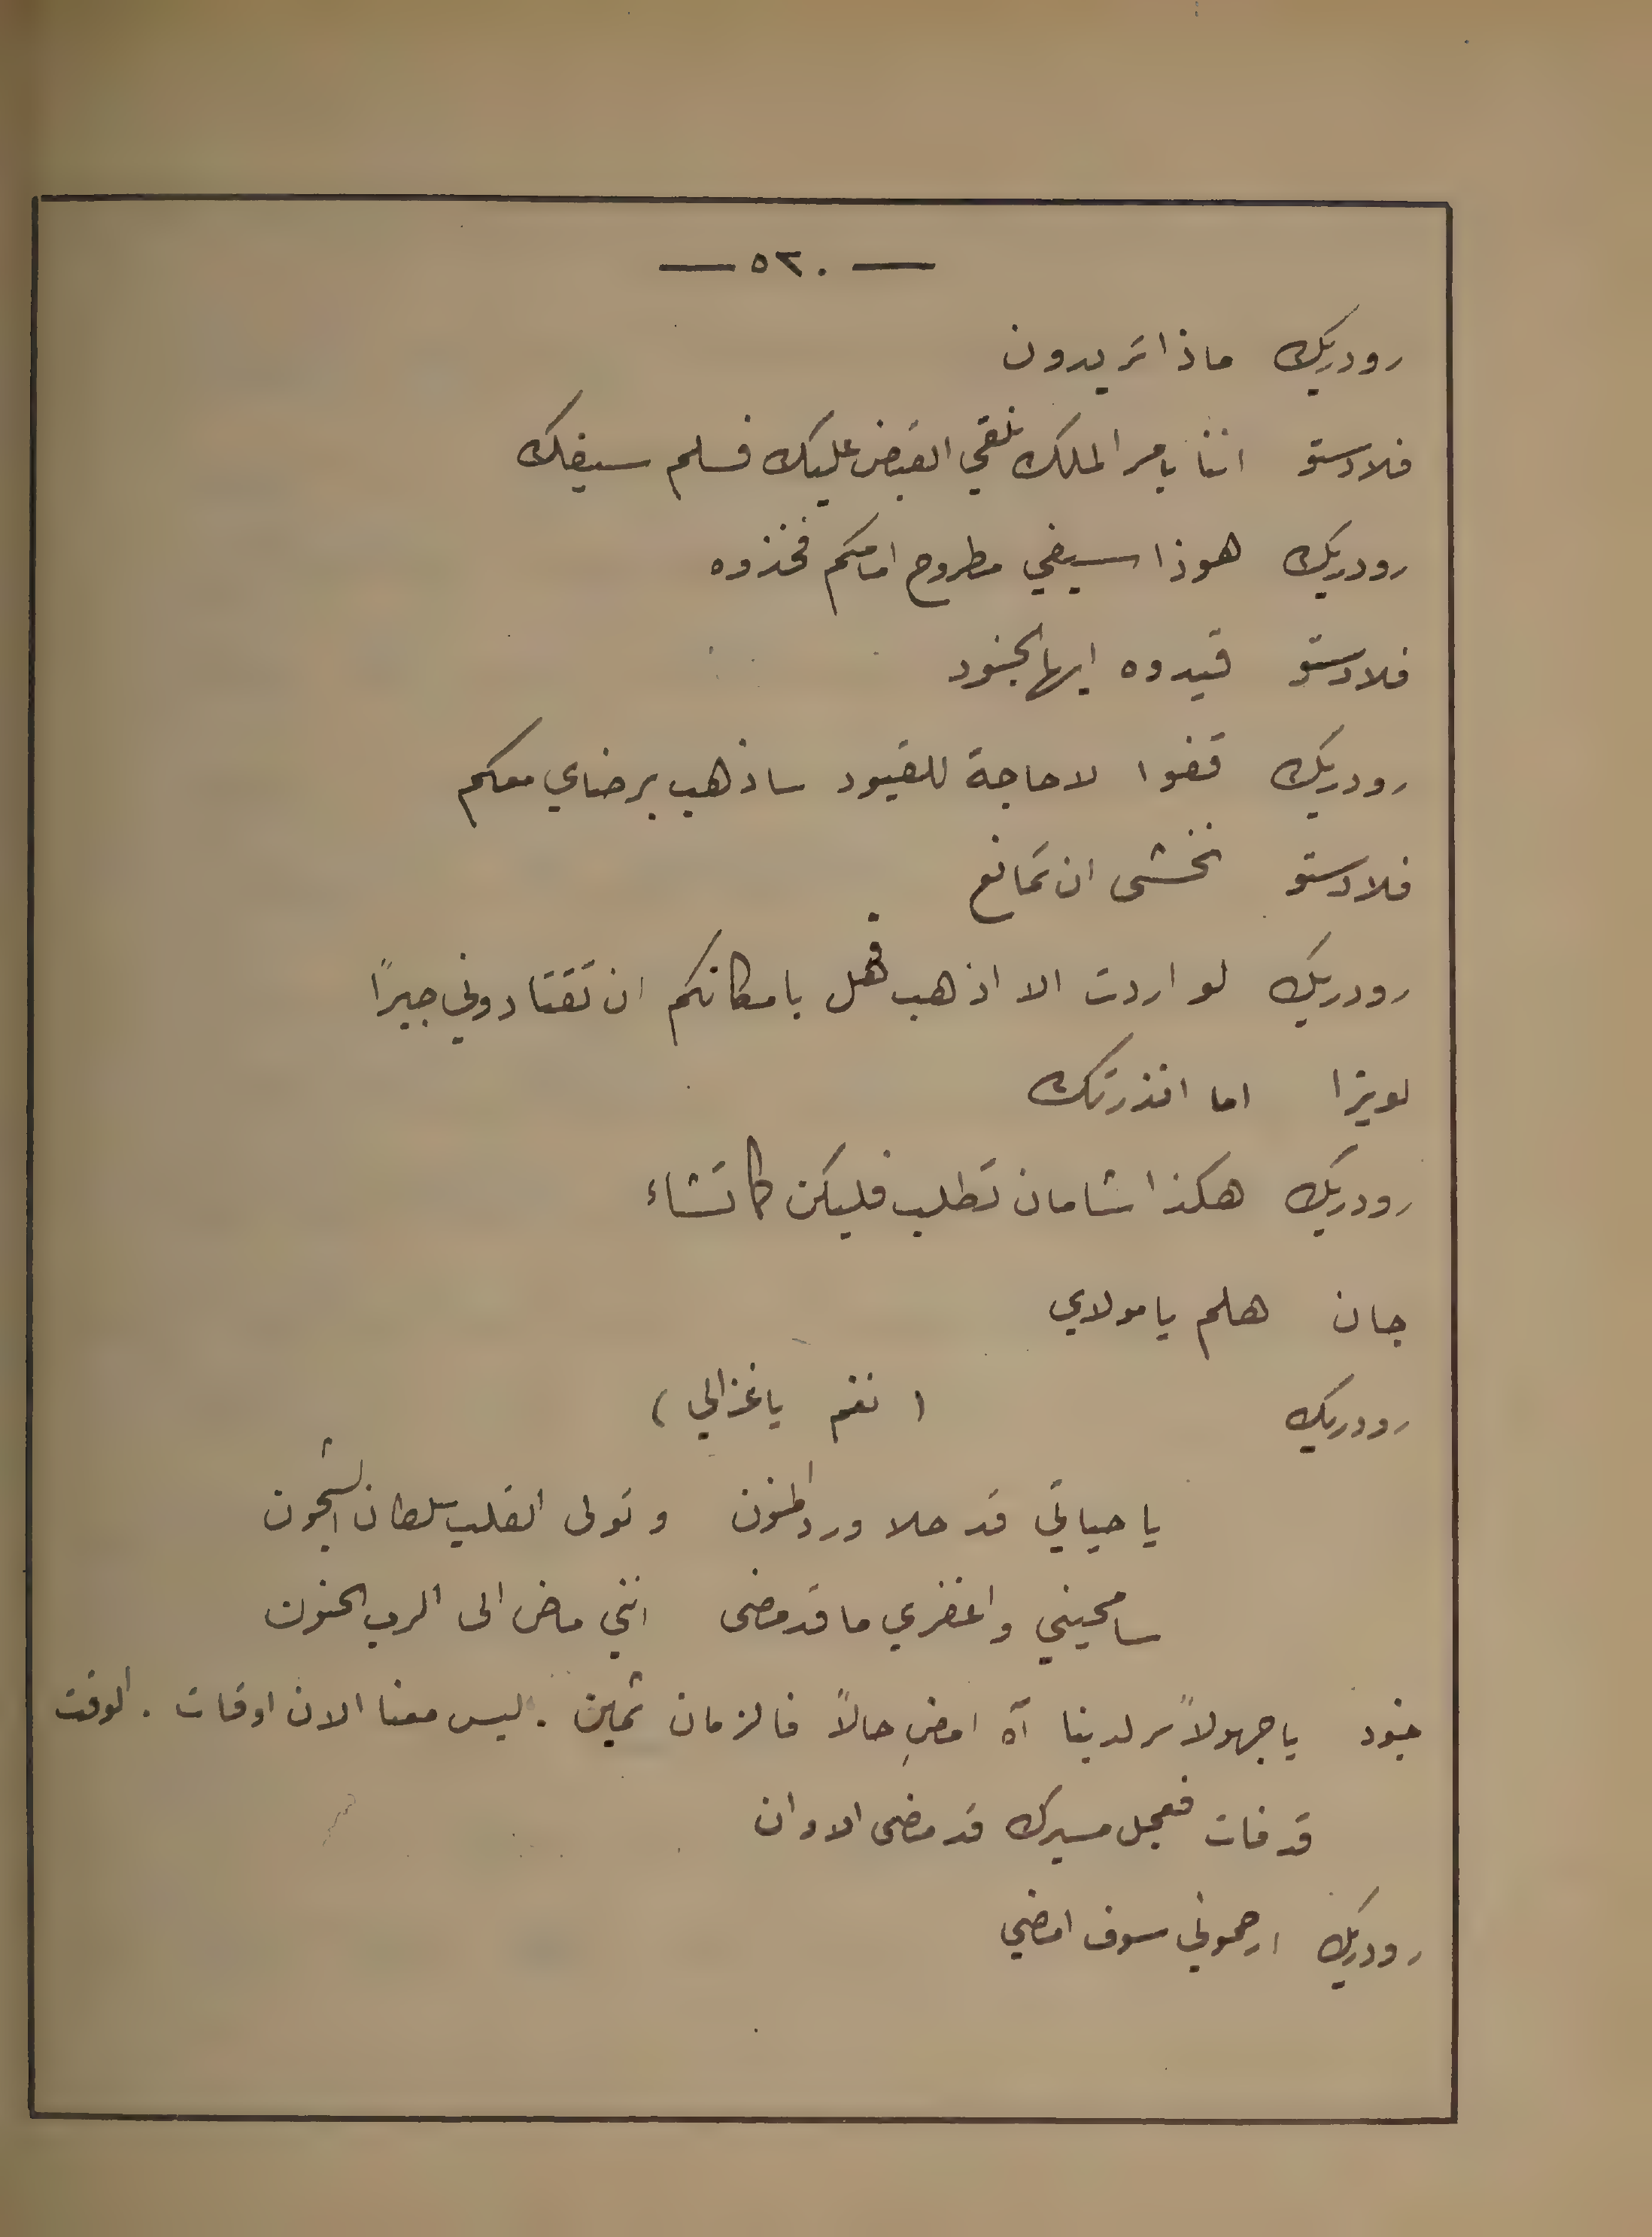 — ٥٢٠ —
رودريك ماذا تريدون
فلادستو اننا بامر الملك نلقي القبض عليك فسلم سيفك
رودريك هوذا سيفي مطروح امامكم فخذوه
فلادستو قيدوه ايها الجنود
رودريك قفوا لا حاجة للقيود ساذهب برضاي معكم
فلادستو نخشى ان تمانع
رودريك لو اردت الا اذهب فهل بامكانكم ان تقتادوني جبرًا
لويزا اما انذرتك
رودريك هكذا شامان تطلب فليكن كما تشاء
جان هلم يا مولاي
رودريك ( نغم يا غزالي )
يا حياتي قد حلا ورد المنون وتولى القلب سلطان الشجون
سامحيني واغفري ما قد مضى انني ماض الى الرب الحنون
جنود يا جهولاً سر لدينا آه امضِ حالاً فالزمان ثمين . ليس معنا الان اوقات . الوقت
قد فات فعجل مسيرك قد مضى الاوان
رودريك ارحموني سوف امضي